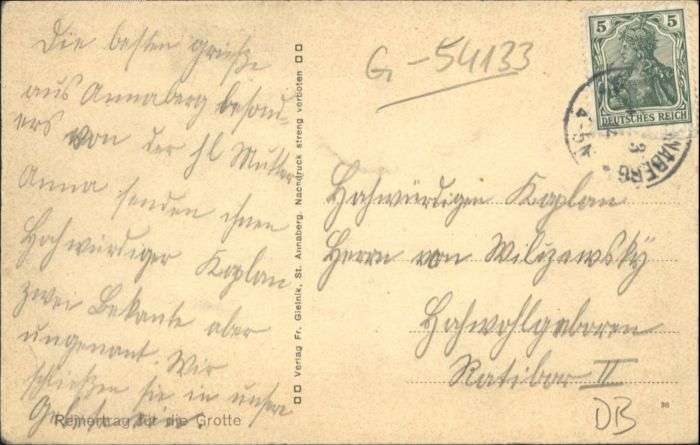 Die besten grüße
aus Annaberg besond-
ers von der hl Mutter
Anna senden ihnen
Hochwürdiger Kaplan
zwei Bekante aber
ungenant. Wir
schließen sie in unsre
Gebete ein.
Reinertrag für die Grotte
Verlag Fr. Gielnik, St. Annaberg. Nachdruck streng verboten
G-54133
5 5
DEUTSCHES REICH
ANNABERG
Hohwürdigen Kaplan
Herrn von Wilizewsky
Hohwohlgeboren
Ratibor II
36
DB